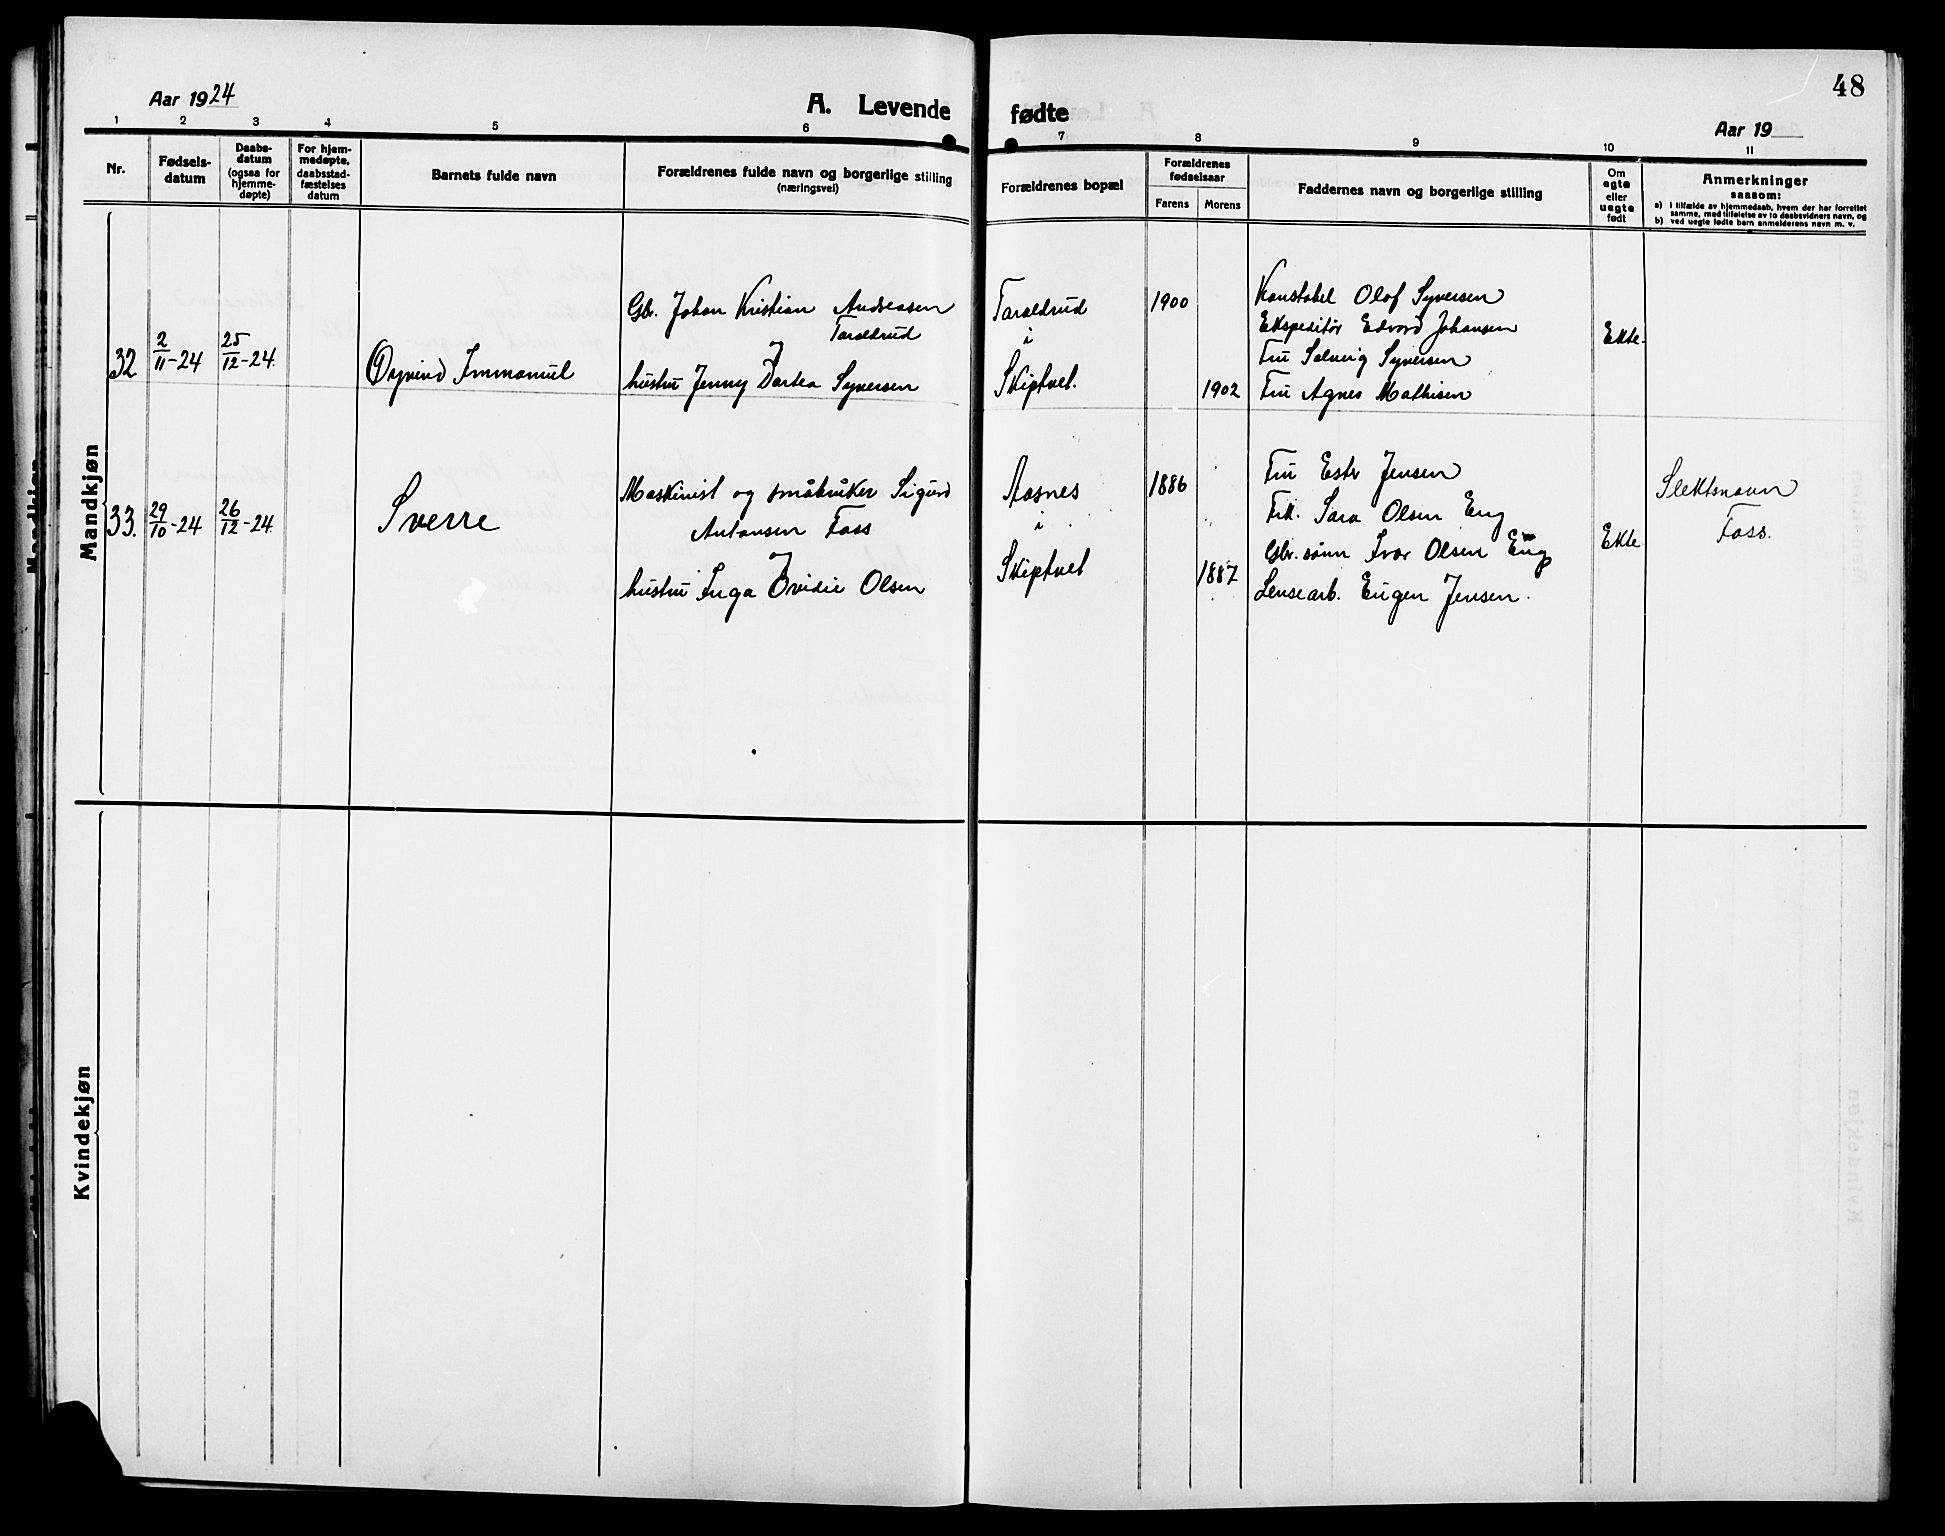 48
Aar 1924
A. Levende
fødte
Aar 19
1 2 3 4 5 6
7 8 9 10 11
Nr.
Fødsels-
datum
Daabs-
datum
(ogsaa for
hjemme-
døpte)
For hjem-
medøpte,
daabsstad-
fæstelses
datum
Barnets fulde navn
Forældrenes fulde navn og borgerlige stilling
(næringsvei)
Forældrenes bopæl
Forældrenes
fødselsaar
Farens
Morens
Faddernes navn og borgerlige stilling
Om
egte
eller
uegte
født
Anmerkninger
saasom:
a) i tilfælde av hjemmedaab, hvem der har forrettet
samme, med tilføielse av to daabsvidners navn, og
b) ved uegte fødte barn anmelderens navn m. v.
Mandkjøn
32
2/11-24
25/12-24.
Øyvind Immanuel
Gbr. Johan Kristian Andreasen
Taraldrud
og
hustru Jenny Dortea Syversen
Taraldrud
i
Skiptvet.
1900
1902
Konstabel Olaf Syversen
Ekspeditør Edvard Johansen
Fru Solveig Syversen
Fru Agnes Mathisen
Ekte.
33.
29/10-24
26/12-24
Sverre
Maskinist og småbruker Sigurd
Antonsen Foss
og
hustru Inga Ovidie Olsen
Aasnes
i
Skiptvet
1886
1887
Fru Ester Jensen
Frk. Sara Olsen Eng
Gbr. sønn Ivar Olsen Eng
Lensearb. Eugen Jensen.
Ekte
Slektsnavn
Foss.
Kvindekjøn